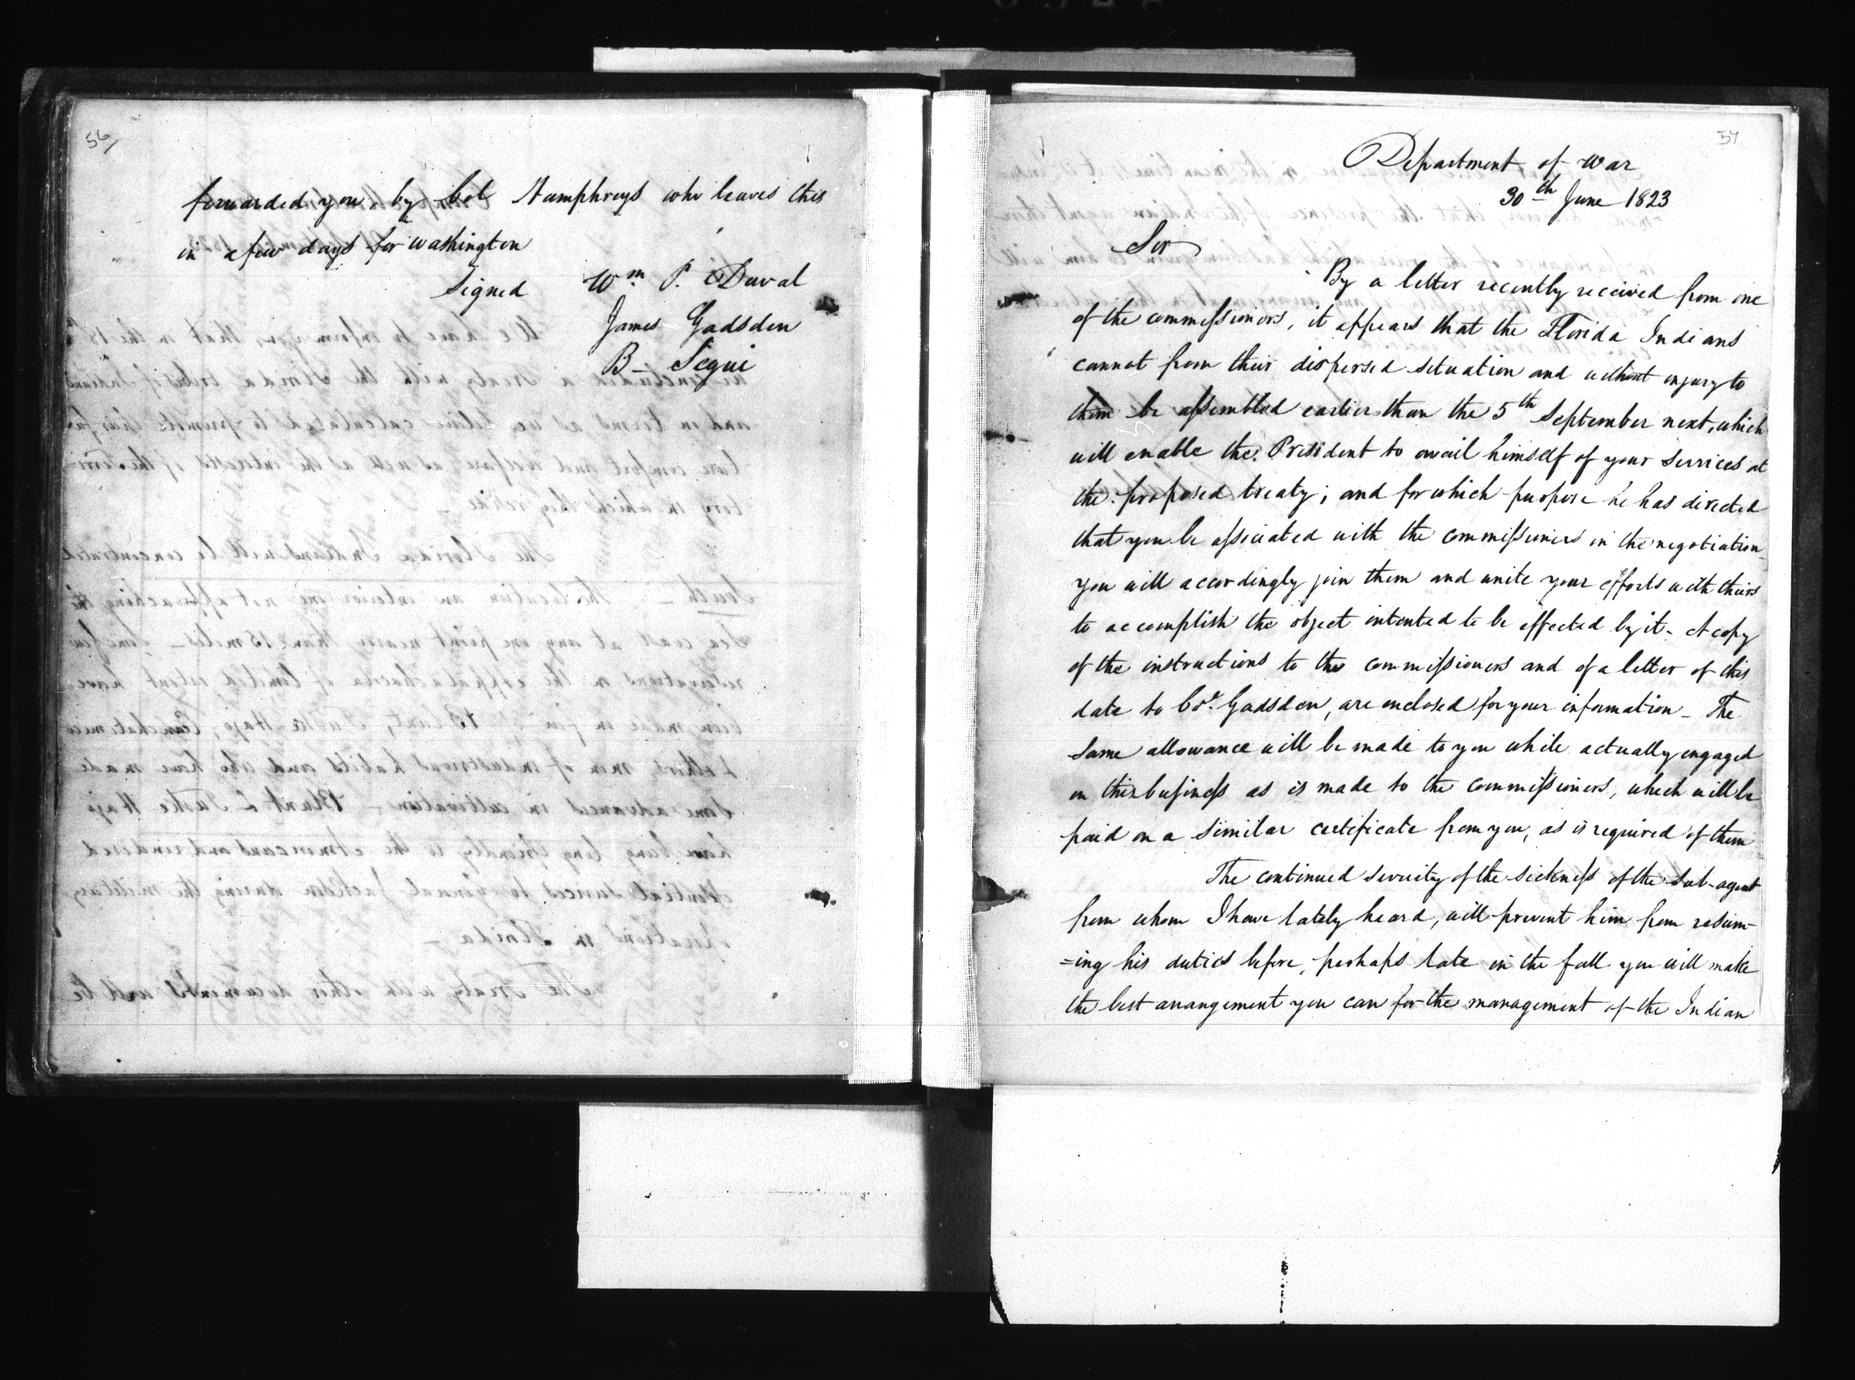 56
forwarded you by Col Humphreys who leaves this
in a few days for Washington
Signed Wm P. Duval
James Gadsden
B- Segui
57
Department of War
30th June 1823
Sir
By a letter recently received from one
of the commissioners, it appears that the Florida Indians
cannot from their dispersed situation and without injury to
them be assembled earlier than the 5th September next, which
will enable the President to avail himself of your services at
the proposed treaty; and for which purpose he has directed
that you be associated with the commissioners in the negotiation
you will accordingly join them and unite your efforts with theirs
to accomplish the object intented to be effected by it. A copy
of the instructions to the commissioners and of a letter of this
date to Col. Gadsden, are enclosed for your information - The
same allowance will be made to you while actually engaged
on this business as is made to the commissioners, which will be
paid on a similar certificate from you, as is required of them
The continued severity of the sickness of the sub-agent
from whom I have lately heard, will prevent him from resum-
=ing his duties before, perhaps late in the fall you will make
the best arrangement you can for the management of the Indian